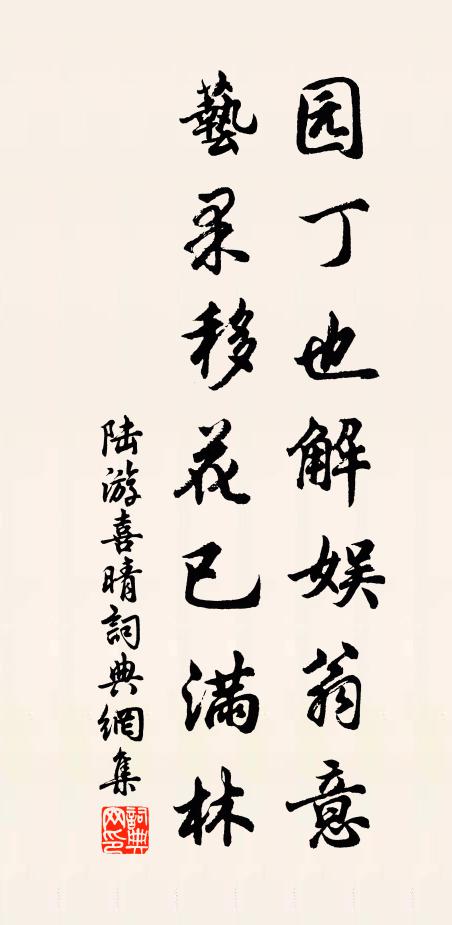 园丁也解娱翁意
藝果移花已满林
陆游喜晴詞典網集
詞典網印